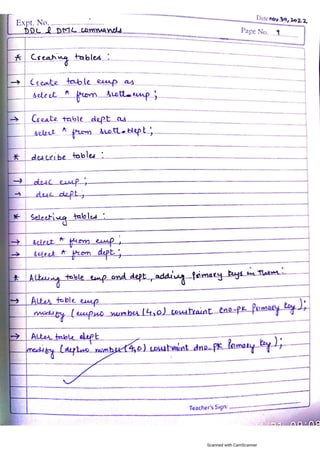 Expt. No.
Date nov 30, 2022
DDL & DML commands
Page No. 1
* Creating tables :
→ Create table emp as
select * from scott.emp ;
→ Create table dept as
select * from scott.dept ;
* describe tables :
→ desc emp ;
→ desc dept ;
* Selecting tables :
→ select * from emp ;
→ select * from dept ;
* Altering table emp and dept, adding primary keys in them :
→ Alter table emp
modify (empno number (4,0) constraint eno-pk Primary key );
→ Alter table dept
modify (deptno number (4,0) constraint dno-pk Primary key );
Teacher's Sign:
Scanned with CamScanner